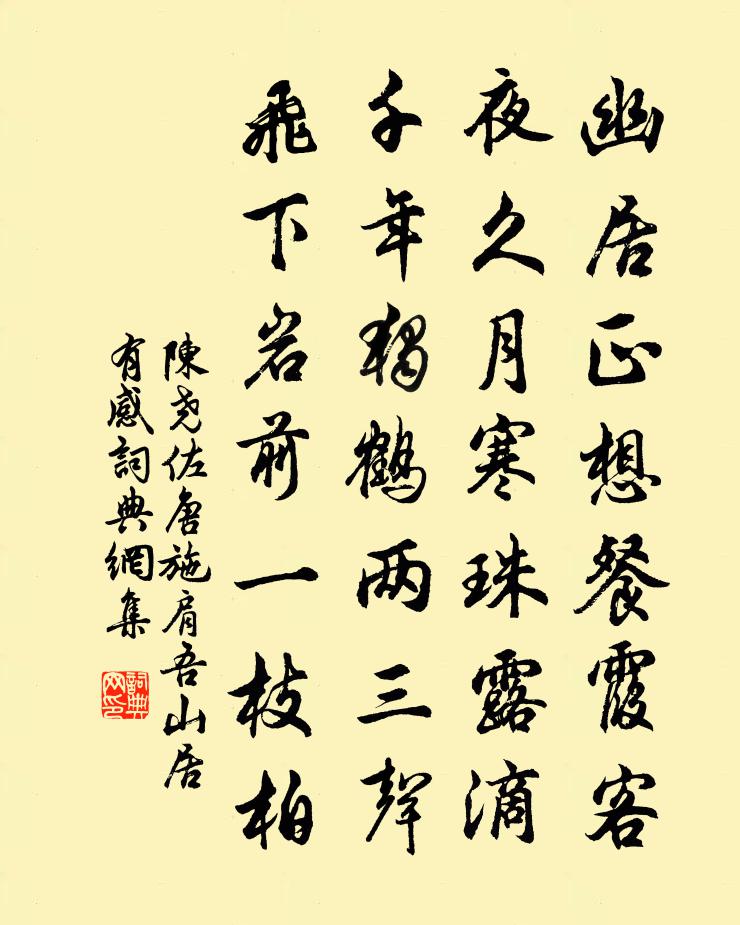 幽居正想餐霞客
夜久月寒珠露滴
千年独鶴两三聲
飛下岩前一枝柏
陳尧佐唐施肩吾山居
有感詞典網集
詞典網印